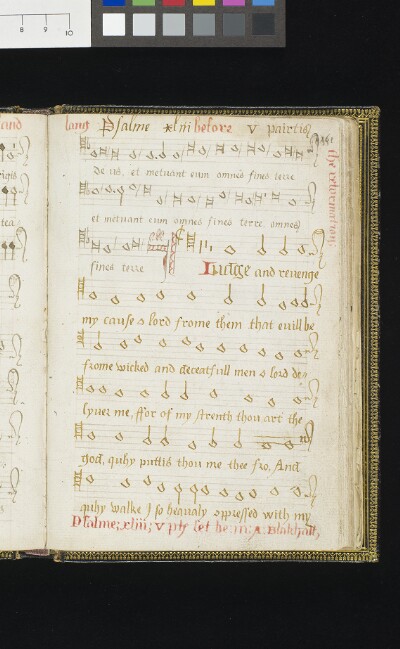 8 9 10
and
lang Psalme xliii before v pairtis
the reformation
de us, et metuant eum omnes fines terre
et metuant eum omnes fines terre omnes
fines terre
Iudge and revenge
my cause o lord frome them that euill be
frome wicked and deceatfull men o lord de
lyuer me, ffor of my strenth thou art the
god, quhy puttis thou me thee fro, And
quhy walke I so heaualy oppressed with my
Psalme; xliii; v pts set be: m; A: Blakhall;